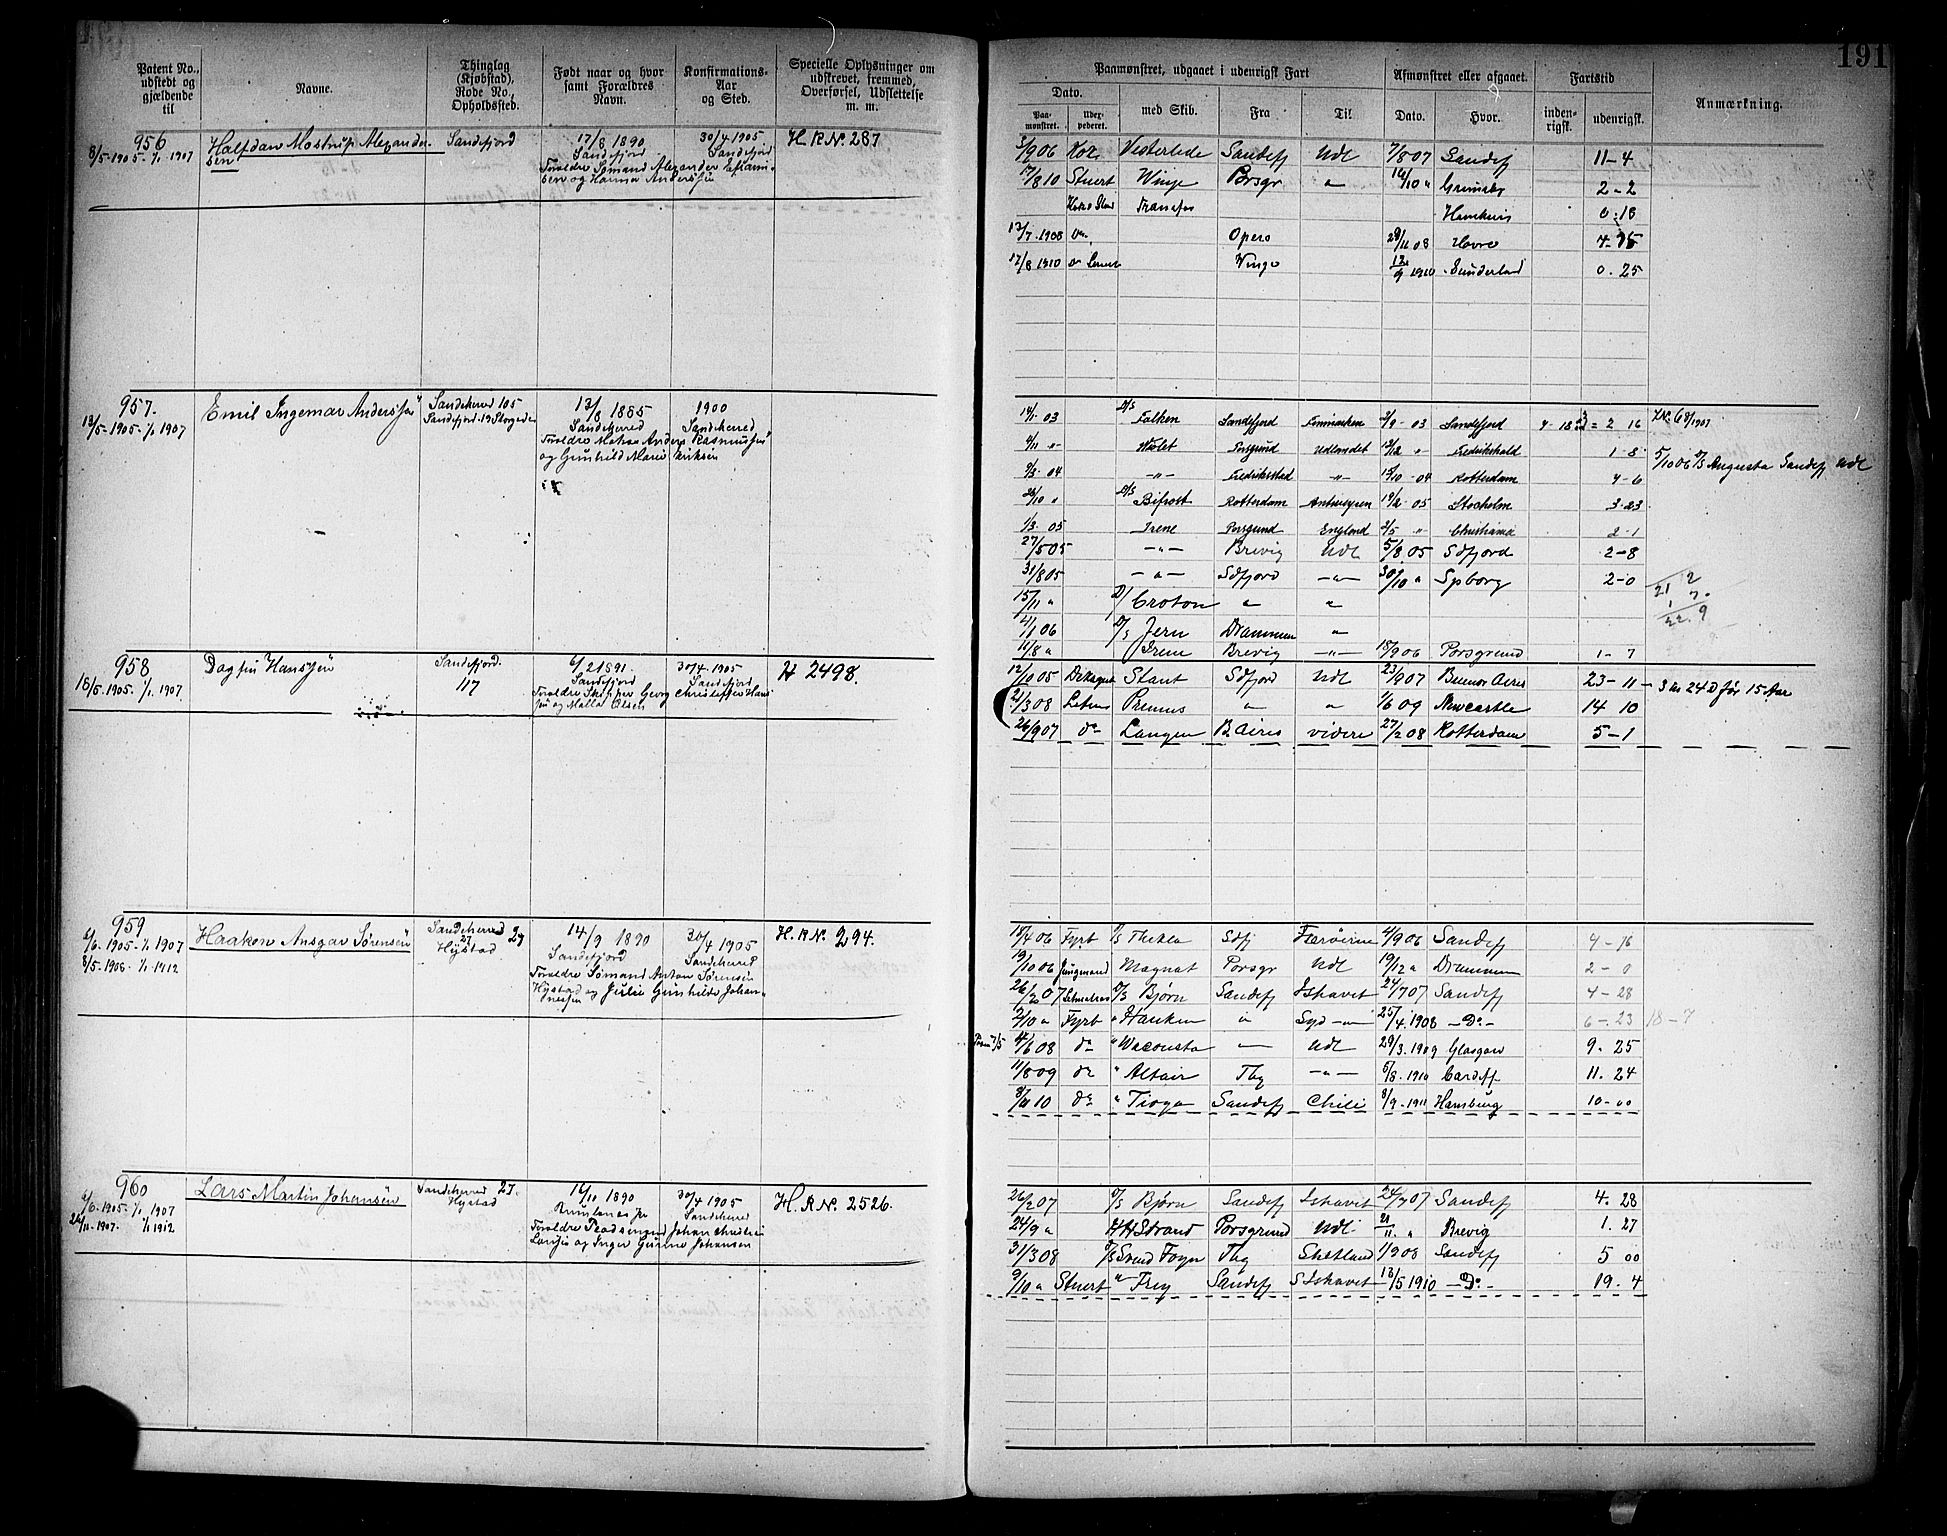 191
Patent No., udstedt og gjældende til | Navne. | Thinglag (Kjøbstad), Rode No., Opholdssted. | Født naar og hvor samt Forældres Navn. | Konfirmations-Aar og Sted. | Specielle Oplysninger om udskrevet, fremmed, Overførsel, Udslettelse m. m.
Paamønstret, udgaaet i udenrigsk Fart | Afmønstret eller afgaaet. | Fartstid | Anmærkning.
Dato. | med Skib. | Fra | Til. | Dato. | Hvor. | inden-rigsk. | udenrigsk.
Paa-mønstret.
956
8/5-1905-1/1 1907 | Halfdan Mostrup Alexander- | Sandefjord | 17/8 1890 | 30/4 1905 | H. R. N. 287
sen | Sandefjord | Sandefjord
Foreldre Sømand Alexander
sen og Hanna Anderssen
/9 06 | Kok | Vesterlede | Sandefj | Udl | 7/8 07 | Sandefj | 11-4
17/8 10 | Stuert | Winje | Porsgr | " | Grimsby | 2-2
0. 18
13/7. 1908 | Do | Opero | 28/11 08 | Havre
17/8 1910 | Wingo | 12/9 1910 | Sunderland | 0. 25
957.
13/5-1905-1/1 1907 | Emil Ingemar Anderssen | Sandeherred 105 | 13/8 1885 | 1900
Sandefjord | Sandeherred | Sandeherred
Foreldre Mathias Anders Rasmussen
og Gunhild Marie Eriksen
14/1 03 | D/S Falken | Sandefjord | Finmarken | /9 03 | Sandefjord | = 2 16
4/11 " | Violet | Porsgrund | Udlandet | 12/12 " | Fredrikshald | 1-8 | 5/10 06 D/S Augusta Sandefj Udl
9/3. 04 | -"- | Fredrikstad | -"- | 15/10-04 | Rotterdam | 4-6
26/10 " | D/S Bifrost | Rotterdam | Antwerpen | 19/2-05 | Stocholm | 3-23
1/3. 05 | Irene | Porsgrund | England | 2/5 " | Christiania | 2-1
27/5 05 | -"- | Brevig | Udl | 5/8 05 | Sdfjord | 2-8
31/8 05 | -"- | Sdfjord | -"- | 30/10 " | Spborg | 2-0
15/11 " | D/ Croton | " | "
/1 06 | D/S Jern | Drammen | "
11/8 " | Irene | Brevig | -"- | 18/9 06 | Porsgrund | 1-7
21 2
1 7
22. 9
958
18/5-1905. 1/1. 1907 | Dagfin Hanssen | Sandefjord. | 6/2 1891. | 30/4. 1905 | H 2498.
117 | Sandefjord | Sandefjord
Foreldre Skipper Georg Christoffer Hans-
sen og Malla Olsen
12/10 05 | Stant | Sdfjord | Udl | 23/9 07 | Buenos Aires | 23-11 - 3 kr 24 D før 15 Aar
2/3 08 | Letm | Primus | " | " | 1/6 09 | Newcastle | 14 10
26/9 07 | do | Langen | B Aires | videre | 27/2 08 | Rotterdam | 5-1
959
/6-1905-1/1 1907 | Haakon Ansgar Sørensen | Sandeherred 27 | 14/9 1890 | 30/4 1905 | H. R. N. 294.
8/5-1908-1/1-1912 | Hystad | Sandefjord | Sandeherred
Foreldre Sømand Anton Sørensen
Hystad og Julie Gunhilde Johan-
nessen
18/4 06 | Fyrb | D/S Thekla | Sdfj | Færøerne | 4/9 06 | Sandefj | 4-16
19/10 06 | Jungmand | Magnat | Porsgr | Udl | 19/12 " | Drammen | 2-0
26/2 07 | Letmatros | D/S Bjørn | Sandefj | Ishavet | 24/7 07 | Sandefj | 4-28
2/10 " | Fyrb | " Hauken | " | Syd -"- | 25/4. 1908 | -Do- | 6-. 23 | 18-7
/6 08 | do | " Waconsta | -"- | Udl | 29/3. 1909 | Glasgow | 9. 25
11/8 09 | do | " Altair | Tbg | -"- | 5/8. 1910 | Cardiff | 11. 24
8/11 10 | do | " Tioga | Sandefj | Chile | 8/9. 1911 | Hamburg | 10-00
960
/6-1905-1/1 1907 | Lars Martin Johansen | Sandeherred 27. | 16/11 1890 | 30/4 1905 | H. R. No. 2526.
26/11-1907. 1/1 1912 | Hystad | Sandeherred
Foreldre Pladsmand Johan Anders
Larsen og Inger Gurine Johansen
26/2 07 | D/S Bjørn | Sandefj | Ishavet | 24/7 07 | Sandefj | 4. 28
24/9 " | HHStrand | Porsgrund | Udl | 21/11. " | Brevig | 1. 27
31/3 08 | D/S Svend Foyn | Tbg | Shetland | 1/9 08 | Sandefj | 5 00
9/10 " | Stuert | " Frey | Sandefj | S Ishavet | 18/5 1910 | -Do- | 19. 4